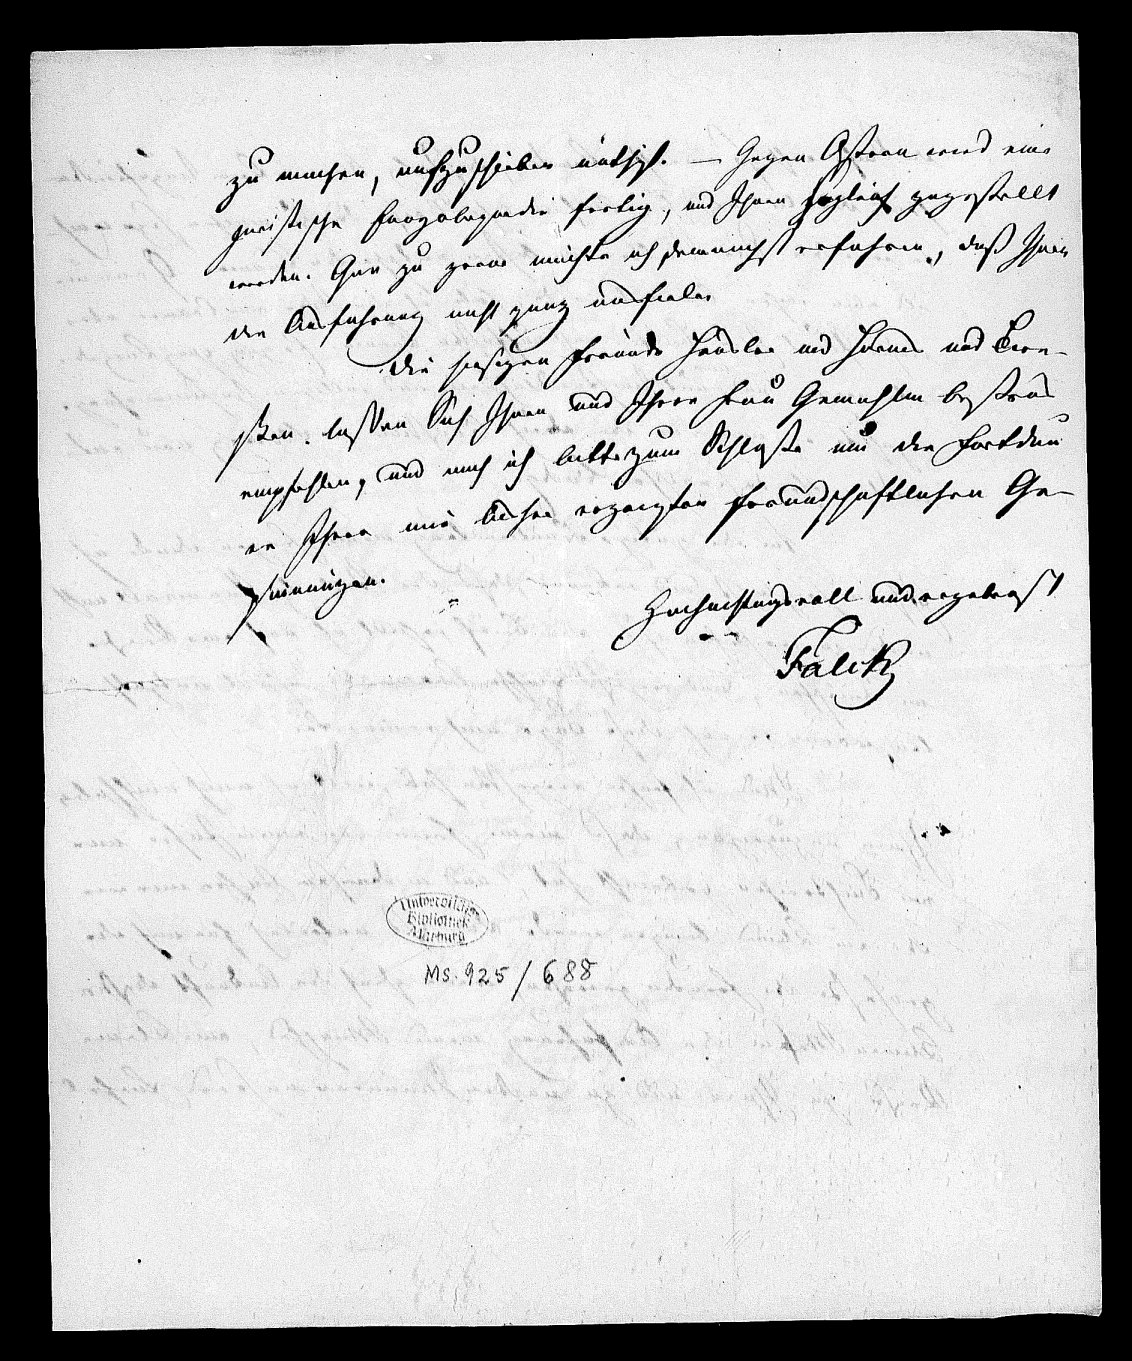 zu machen, aufzuschieben nöthigt. — Gegen Ostern wird eine
juristische Encyclopaedie fertig, und Ihnen sogleich zugestellt
werden. Gar zu gerne möchte ich demnächst erfahren, daß Ihnen
die Ausführung nicht ganz misfiele.
Die hiesigen Freunde Hensler und Hurne und
lassen Sich Ihnen und Ihrer Frau Gemahlin bestens
empfehlen, und auch ich bitte zum Schlusse um die Fortdau
er Ihrer mir bisher erzeigten freundschaftlichen Ge-
sinnungen.
Hochachtungsvoll und ergebenst
Falck
Universitäts
Bibliothek
Marburg
Ms. 925/688